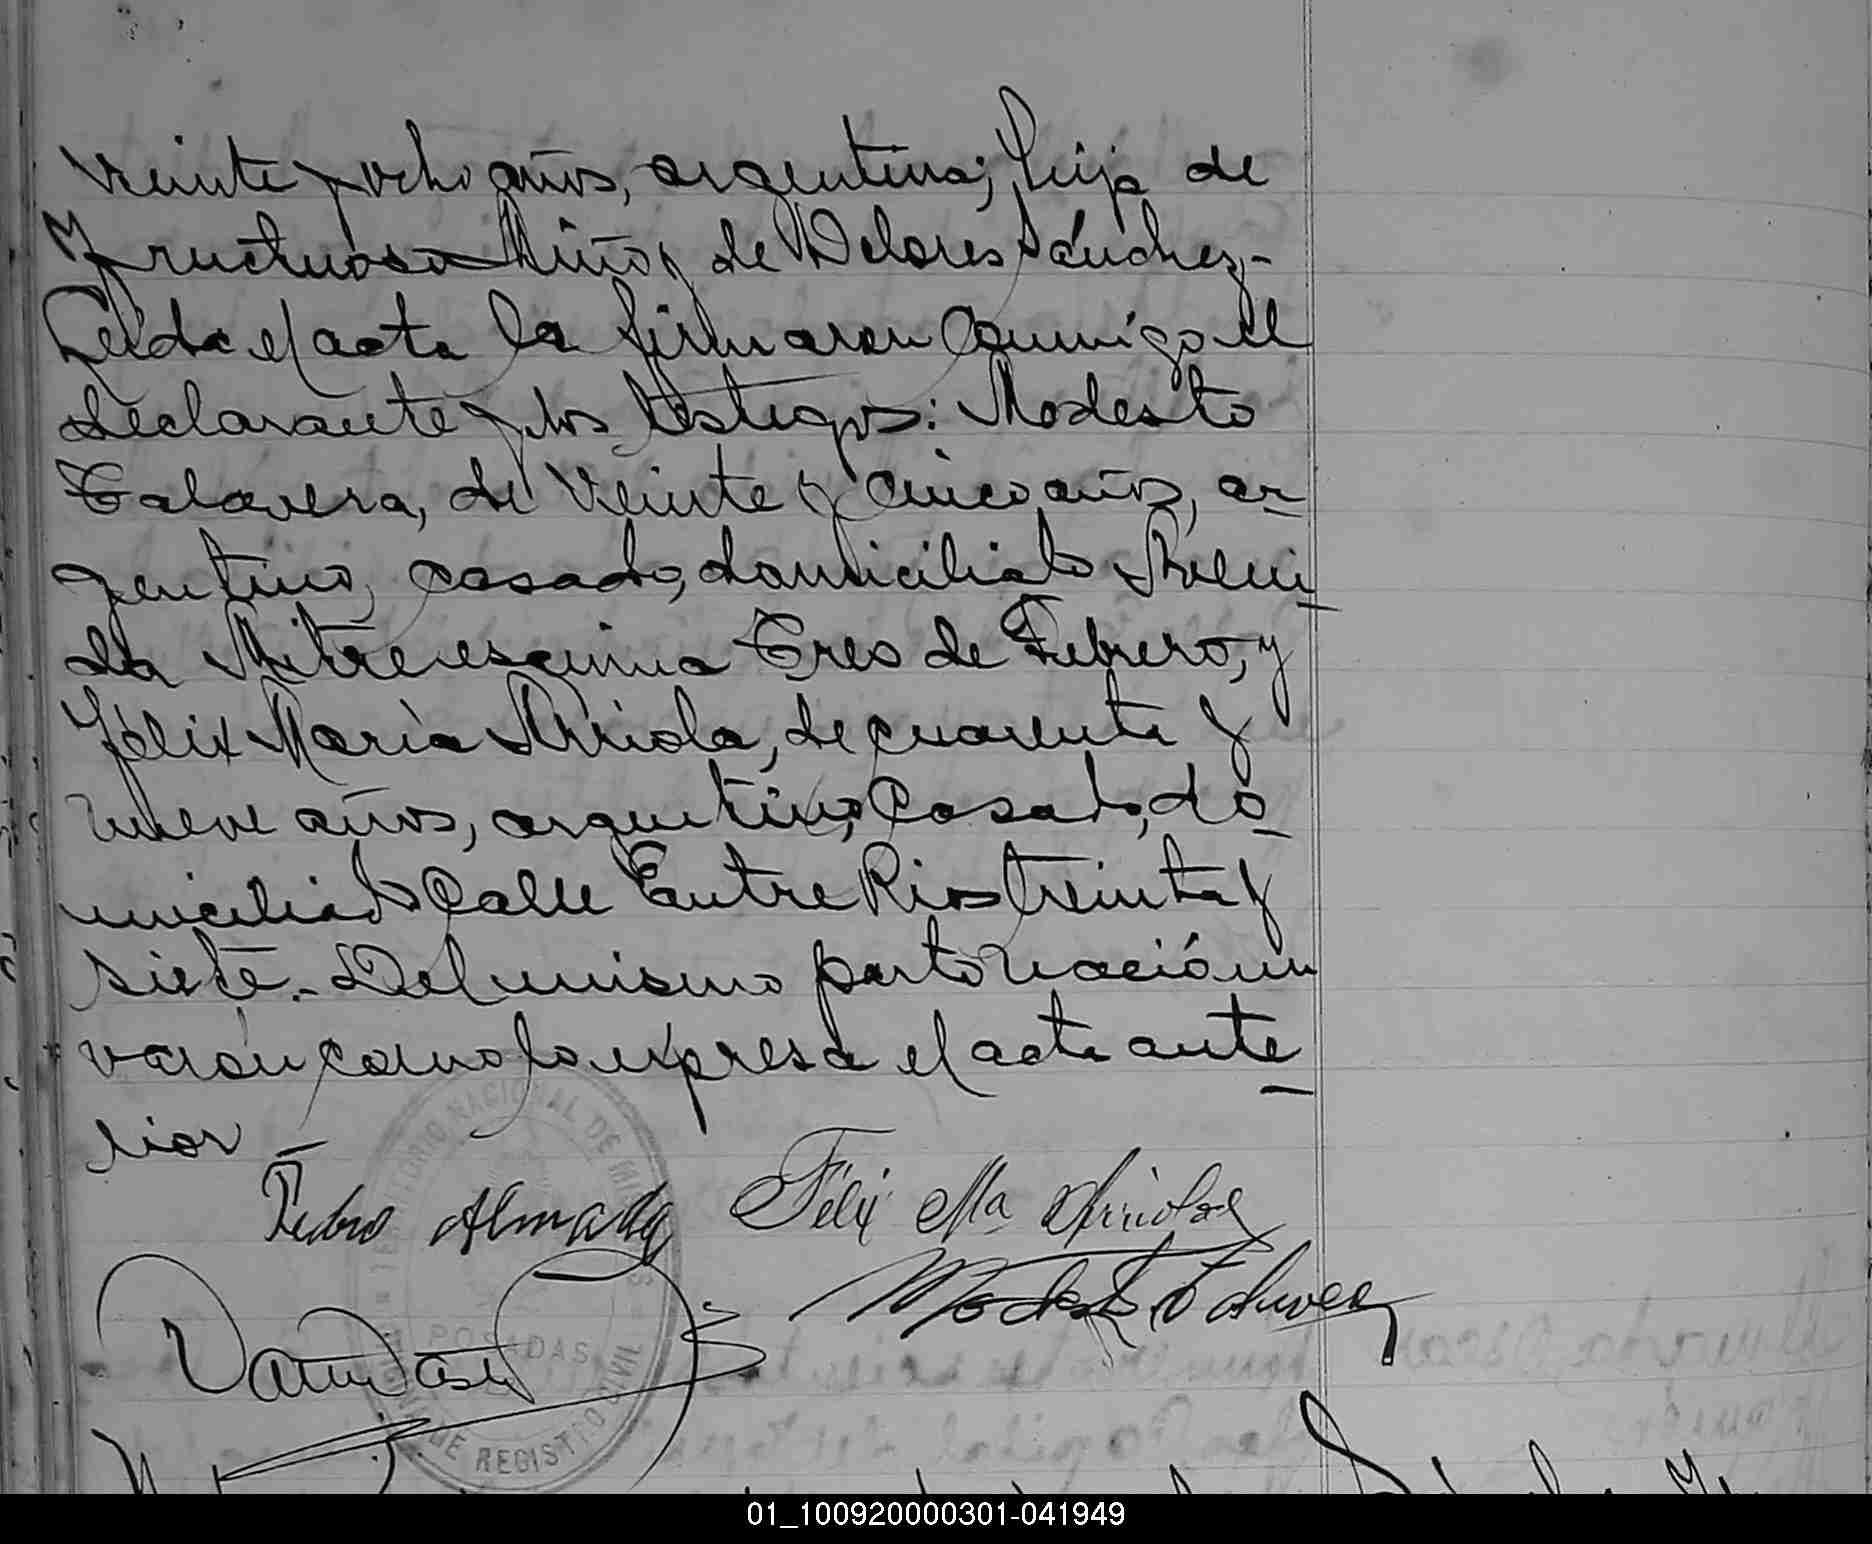 veinte y ocho años, argentina; hija de
Fructuoso Miño y de Dolores Sánchez.-
Leída el acta la firmaron conmigo el
declarante y los testigos: Modesto
Talavera, de veinte y cinco años, ar-
gentino, casado, domiciliado Aveni-
da Mitre esquina Tres de Febrero, y
Félix María Arriola, de cuarenta y
nueve años, argentino, casado, do-
miciliado calle Entre Rios treinta y
siete.- Del mismo parto nació un
varón como lo expresa el acta ante-
rior -
Pedro Almada Félix Ma Arriola
Modesto Talavera
TERRITORIO NACIONAL DE MISIONES
POSADAS
REGISTRO CIVIL
01_100920000301-041949